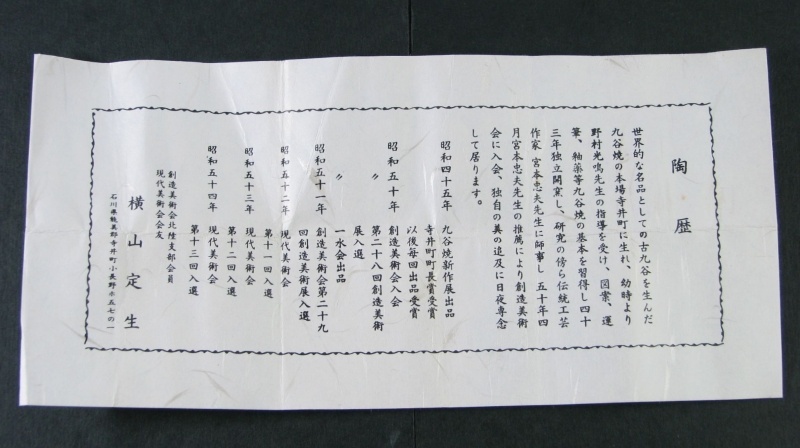 陶歴
世界的な名品としての古九谷を生んだ
九谷焼の本場寺井町に生れ、幼時より
野村光鳴先生の指導を受け、図案、運
筆、釉薬等九谷焼の基本を習得し四十
三年独立開窯し、研究の傍ら伝統工芸
作家 宮本忠夫先生に師事し 五十年四
月宮本忠夫先生の推薦により創造美術
会に入会、独自の美の追及に日夜専念
して居ります。
昭和四十五年 九谷焼新作展出品
寺井町町長賞受賞
以後毎回出品受賞
昭和五十年 創造美術会入会
〃 第二十八回創造美術
展入選
〃 一水会出品
昭和五十一年 創造美術会第二十九
回創造美術展入選
昭和五十二年 現代美術会
第十一回入選
昭和五十三年 現代美術会
第十二回入選
昭和五十四年 現代美術会
第十三回入選
創造美術会北陸支部会員
現代美術会会友
横山定生
石川県能美郡寺井町小長野ホ五七の一